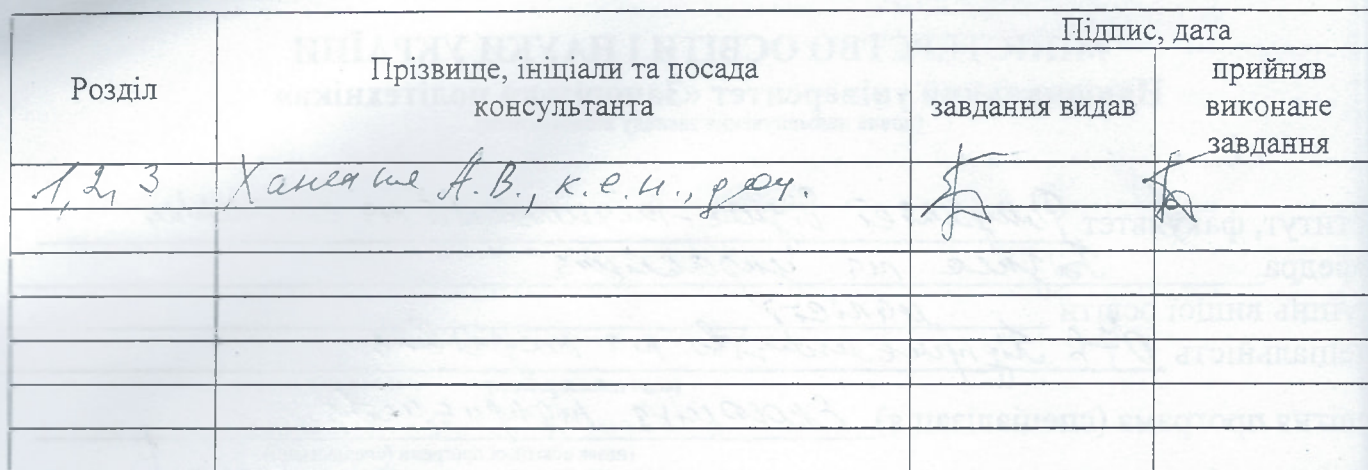 Розділ
Прізвище, ініціали та посада
консультанта
Підпис, дата
завдання видав
прийняв
виконане
завдання
1, 2, 3
А.В., к.е.н., доц.